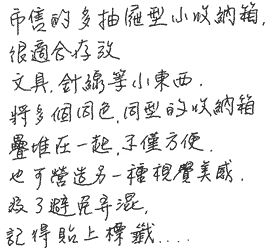 市售的多抽屜型小收納箱,
很適合存放
文具,針線等小東西.
將多個同色,同型的收納箱
疊堆在一起,不僅方便,
也可營造另一種視覺美感.
為了避免弄混,
記得貼上標籤....